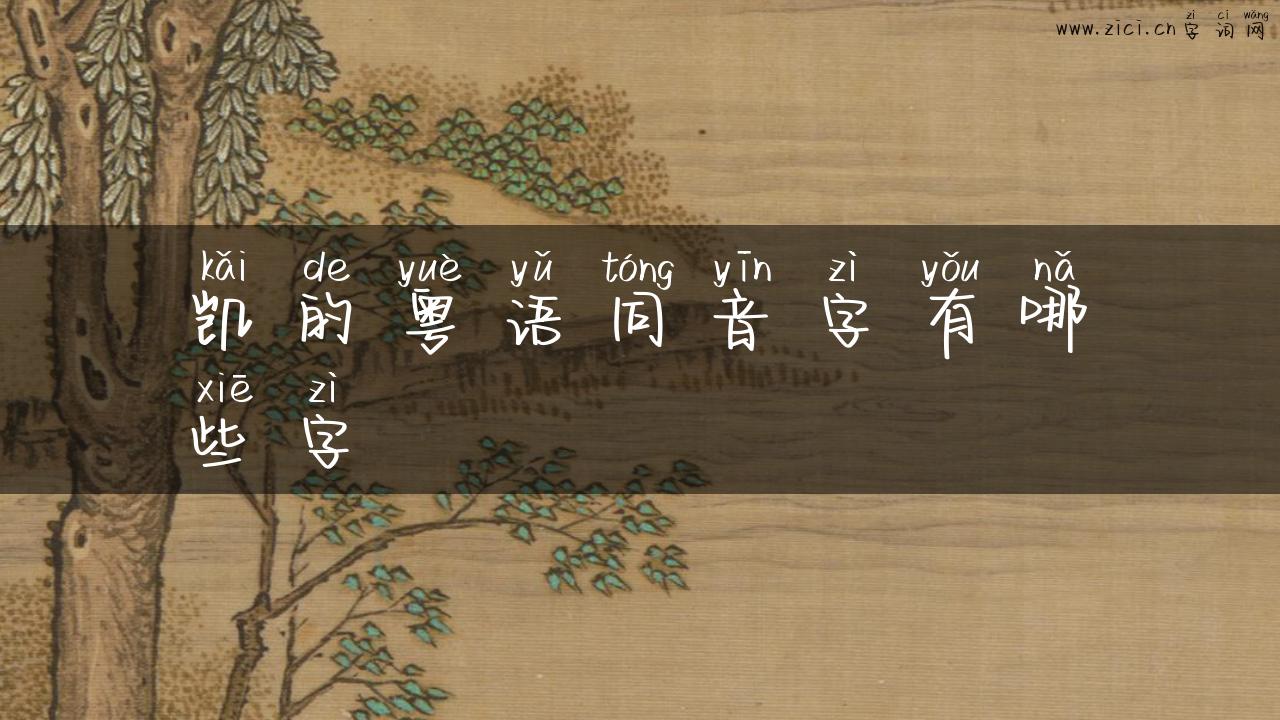 zì cí wǎng
www.zici.cn 字词网
kǎi de yuè yǔ tóng yīn zì yǒu nǎ
凯的粤语同音字有哪
xiē zì
些字